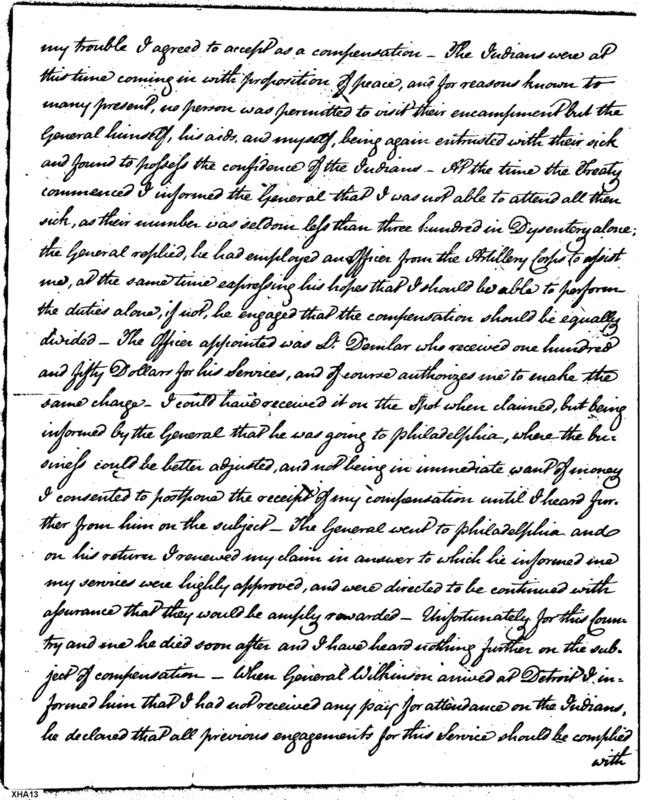 my trouble I agreed to accept as a compensation – The Indians were at
this time coming in with proposition of peace, and for reasons known to
many present, no person was permitted to visit their encampment but the
General himself, his aids, and myself, being again entrusted with their sick
and found to possess the confidence of the Indians – At the time the Treaty
commenced I informed the General that I was not able to attend all their
sick, as their number was seldom less than three hundred in Dysentery alone;
the General replied, he had employed an Officer from the Artillery Corps to assist
me, at the same time expressing his hopes that I should be able to perform
the duties alone, if not, he engaged that the compensation should be equally
divided – The Officer appointed was Lt. Demlar who received one hundred
and fifty Dollars for his Services, and of course authorizes me to make the
same charge – I could have received it on the Spot when claimed, but being
informed by the General that he was going to Philadelphia, where the bu-
siness could be better adjusted, and not being in immediate want of money
I consented to postpone the receipt of my compensation until I heard fur-
ther from him on the subject – The General went to Philadelphia and
on his return I renewed my claim in answer to which he informed me
my services were highly approved, and were directed to be continued with
assurance that they would be amply rewarded – Unfortunately for this Coun-
try and me he died soon after and I have heard nothing further on the sub-
ject of compensation – When General Wilkinson arrived at Detroit I in-
formed him that I had not received any pay for attendance on the Indians,
he declared that all previous engagements for this Service should be complied
with
XHA13